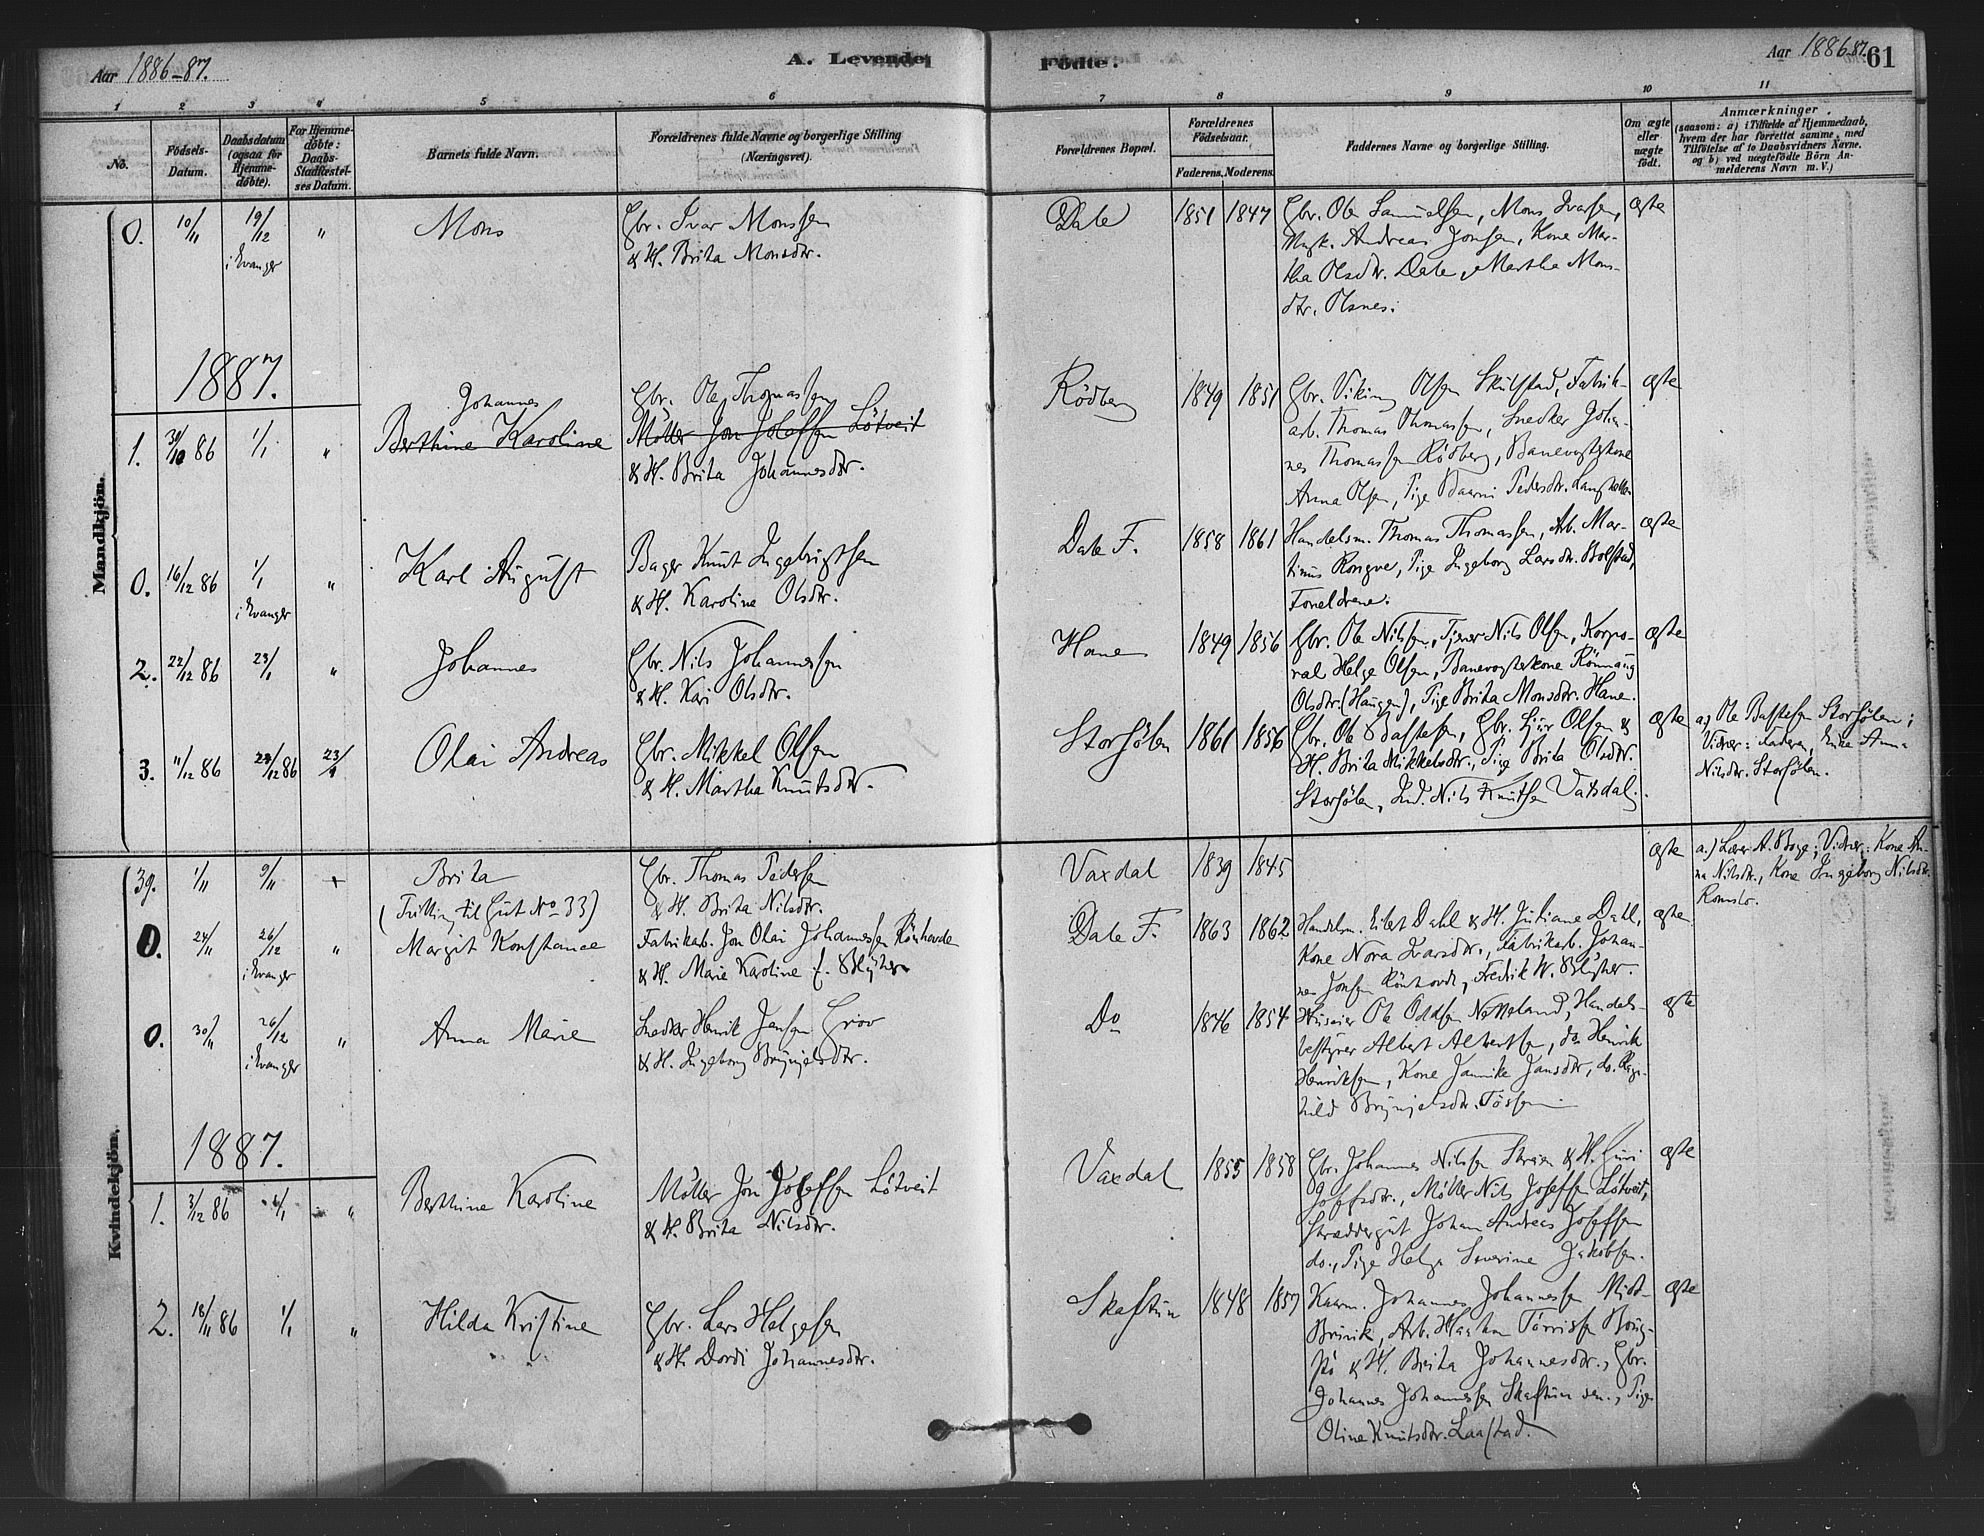 Aar 1886-87.
A. Levende
Fødte.
Aar 1886-87.
61
1 2 3 4 5 6 7 8 9 10 11
No.
Födsels-
Datum.
Daabsdatum
(ogsaa för
Hjemme-
döbte).
For Hjemme-
döbte:
Daabs-
Stadfæstel-
ses Datum.
Barnets fulde Navn.
Forældrenes fulde Navne og borgerlige Stilling
(Næringsvei).
Forældrenes Bopæl.
Forældrenes
Födselsaar.
Faderens. Moderens.
Faddernes Navne og borgerlige Stilling.
Om ægte
eller
uægte
født.
Anmærkninger.
(saasom: a) i Tilfælde af Hjemmedaab,
hvem der har forrettet samme, med
Tilföielse af to Daabsvidners Navne.
og b) ved uægtefödte Börn An-
melderens Navn m.V.)
Mandkjön.
0. 10/11 19/12 i Evanger " Mons
Gbr. Ivar Monssen
& H. Brita Monsdtr.
Dale 1851 1847
Gbr. Ole Samuelsen, Mons Ivarsen,
Ungk. Andreas Jonsen, Kone Mar-
tha Olsdtr. Dale, Martha Mons-
dtr. Olsnes.
ægte
1887.
1. 30/10 86 1/1 "
Johannes
Berthine Karoline
Gbr. Ole Thomassen
Møller Jon Josefsen Løtveit
& H. Brita Johannesdtr.
Rödberg 1849 1851
Gbr. Viking Olsen Skulstad, Fabrik-
arb. Thomas Thomassen, Snedker Johan-
nes Thomassen Rödberg, Banevogterkone
Anna Olsen, Pige Pedersdtr.
ægte
0. 16/12 86 1/1 i Evanger " Karl August
Bager Knut Ingebrigtsen
& H. Karoline Olsdtr.
Dale F. 1858 1861
Handelsm. Thomas Thomassen, Arb. Mar-
tinus Rongve, Pige Ingeborg Larsdtr. Bolstad,
Foreldrene.
ægte
2. 22/12 86 23/1 " Johannes
Gbr. Nils Johannessen
& H. Kari Olsdtr.
Hane 1849 1856
Gbr. Ole Nilssen, Tjener Nils Olsen, Korpo-
ral Helge Olsen, Banevogterkone Rönnaug
Olsdtr. (Haugen), Pige Brita Monsdtr. Hane.
ægte
3. 11/12 86 24/12 86 23/1 Olai Andreas
Gbr. Mikkel Olsen
& H. Martha Knutsdtr.
Storsölen 1861 1856
Gbr. Ole Olsen &
H. Brita Mikkelsdtr., Pige Brita Olsdtr.
Storsölen, Ind. Nils Knutsen Vaxdal.
ægte
a.) Ole Storsölen;
Vidner: Faderen, Enke Anna
Nilsdtr. Storsölen.
Kvindekjön.
39. 1/11 9/11 + Brita
(Tvilling til Gut No 33)
Gbr. Thomas Pedersen
& H. Brita Nilsdtr.
Vaxdal 1839 1845
ægte
a.) Lærer A. Boge; Vidner: Kone An-
na Nilsdtr., Kone Ingeborg Nilsdtr.
Romslo.
0. 24/11 26/12 i Evanger " Margit Konstance
Fabrikarb. Jon Olai Johannessen Rönhovde
& H. Marie Karoline f. Blÿtner
Dale F. 1863 1862
Handelsm. Eilert Dahl & H. Juliane Dahl,
Kone Nora Ivarsdtr., Fabrikarb. Johan-
nes Jonsen Rönhovde, Fredrik W. Blÿtner.
ægte
0. 30/11 26/12 i Evanger " Anna Marie
Snedker Henrik Jensen Grov
& H. Ingeborg Brynjelsdtr.
Do 1846 1854
Huseier Ole Oddsen Netteland, Handels-
bestyrer Albert Albertsen, do Henrik
Henriksen, Kone Jannike Jansdtr., do. Rag-
hild Brynjelsdtr. Fossen.
ægte
1887.
1. 3/12 86 6/1 " Berthine Karoline
Møller Jon Josefsen Løtveit
& H. Brita Nilsdtr.
Vaxdal 1855 1858
Gbr. Johannes Nilssen & H. Guri
Josefsdtr., Møller Nils Josefsen Løtveit,
Skræddergut Johan Andreas Josefsen
do., Pige Helga Severine Jakobsen.
ægte
2. 18/11 86 1/1 " Hilda Kristine
Gbr. Lars Helgesen
& H. Dordi Johannesdtr.
Skaftun 1848 1857
Kaarm. Johannes Johannessen Midt-
Brüvik, Arb. Haakon Tørrissen
& H. Brita Johannesdtr., Gbr.
Johannes Johannessen Skaftun sen., Pige
Oline Knutsdtr. Laastad.
ægte